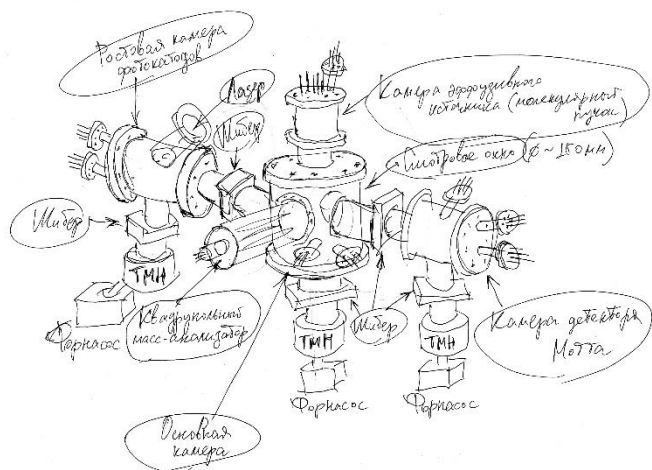 Ростовая камера
фотокатодов
Лазер
Шибер
Камера эффузивного
источника (молекулярный
пучок)
Смотровое окно (φ ~ 150 мм)
Шибер
ТМН
Форнасос
Квадрупольный
масс-анализатор
Основная
камера
ТМН
Форнасос
Шибер
ТМН
Форнасос
Камера детектора
Мотта